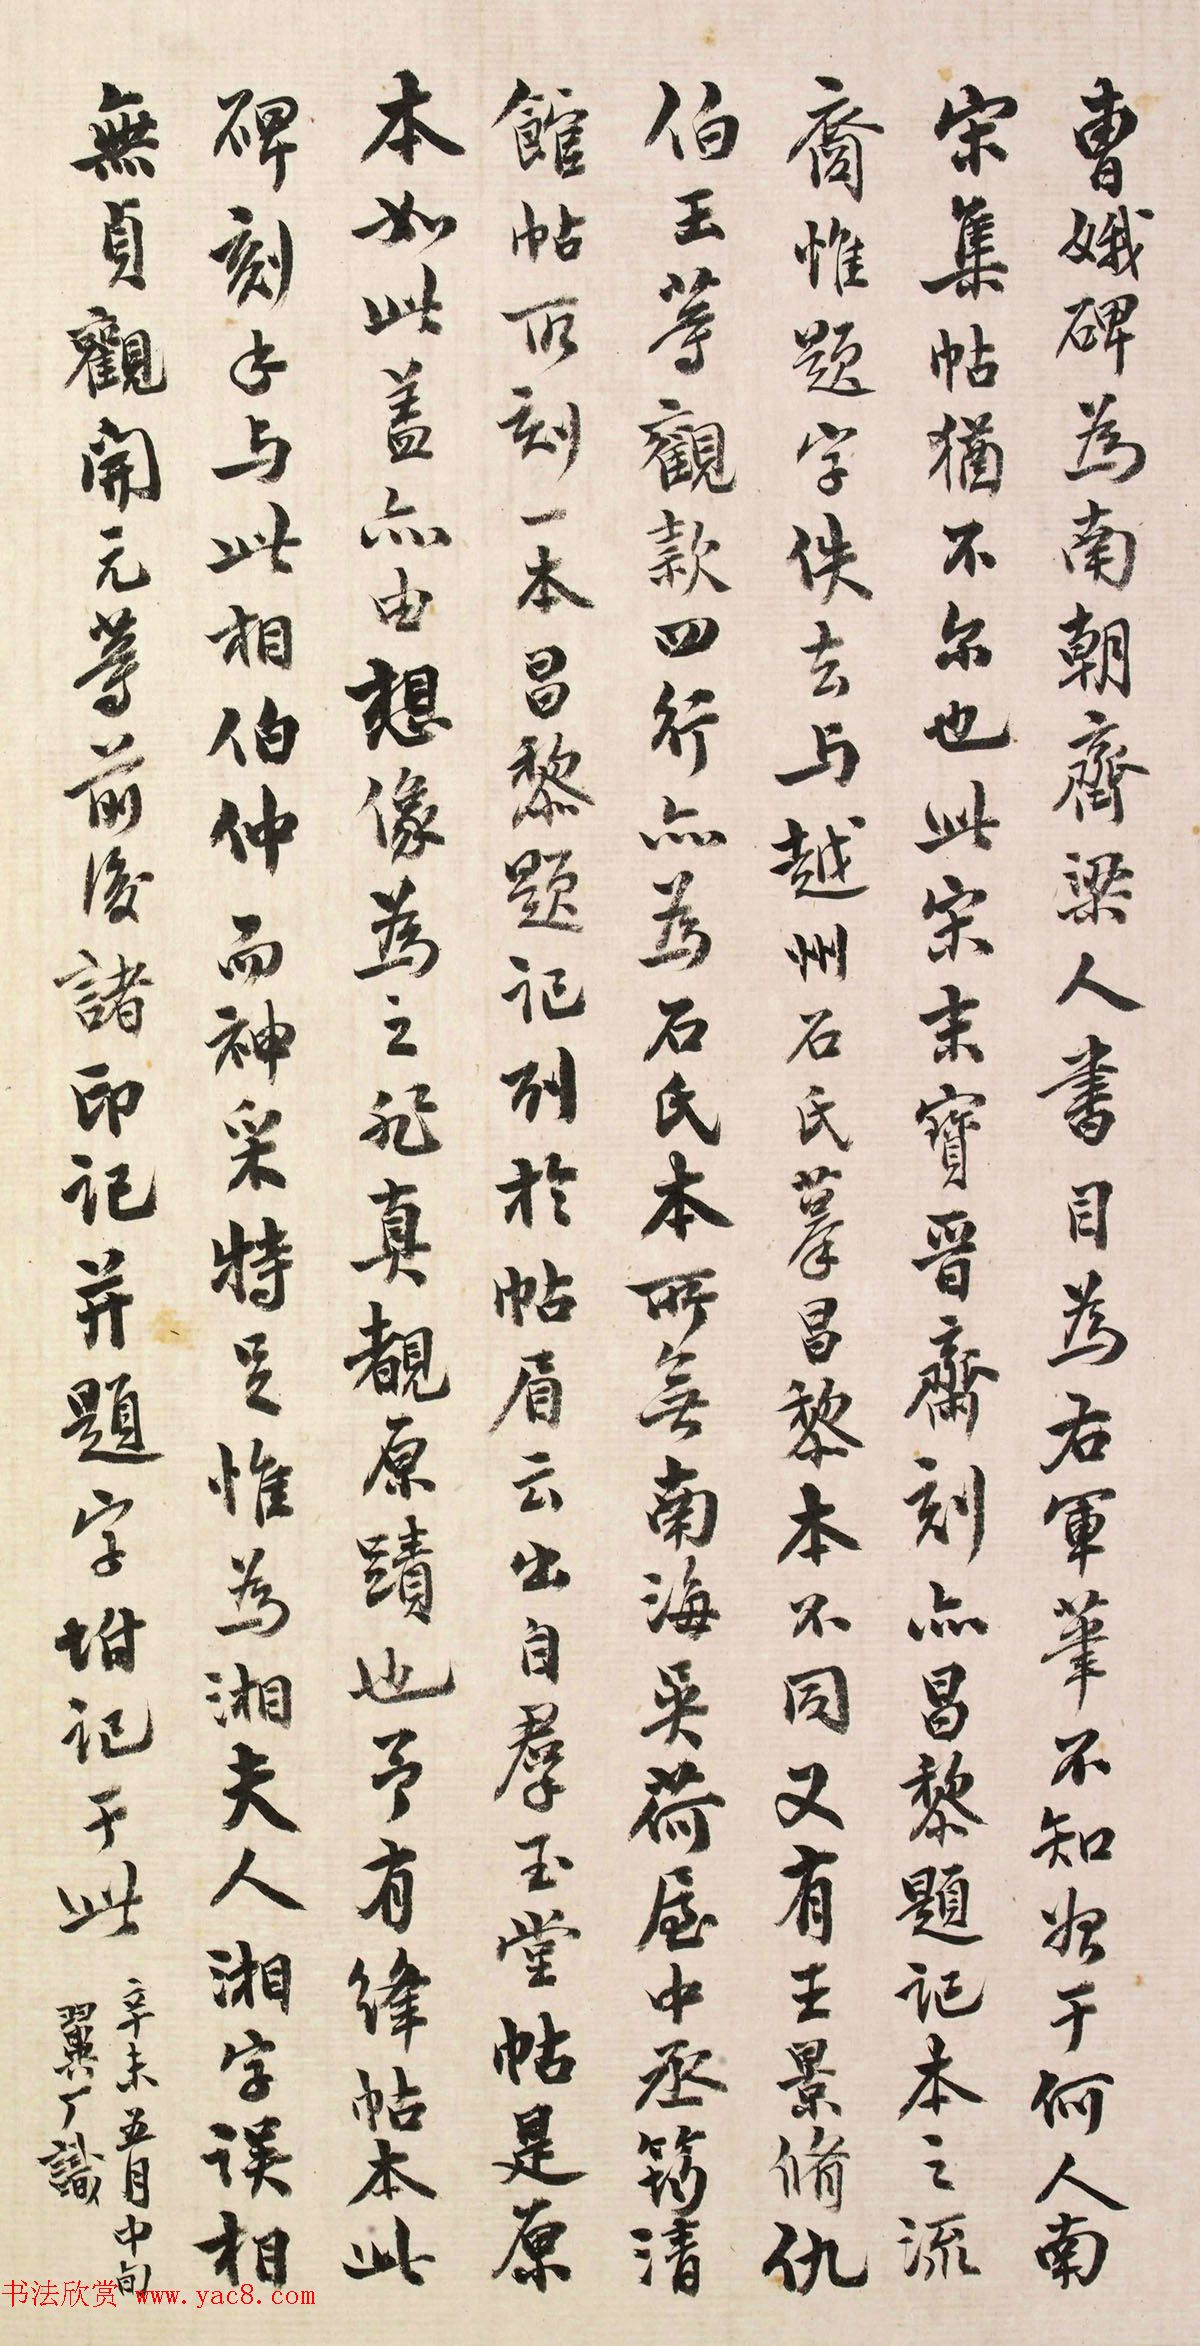 曹娥碑為南朝齊梁人書目為右軍筆不知始于何人南
宋集帖猶不尔也此宋末寶晉齋刻亦昌黎題記本之流
裔惟題字佚去与越州石氏摹昌黎本不同又有王景脩仇
伯玉等觀款四行亦為石氏本所無南海吳荷屋中丞筠清
館帖所刻一本昌黎題記列於帖眉云出自羣玉堂帖是原
本如此盖亦由想像為之非真覩原蹟也予有絳帖本此
碑刻手与此相伯仲而神采特足惟為湘夫人湘字误相
無貞觀開元等前後諸印記并題字坿記于此
辛未五月中旬
翼丁識
书法欣赏 www.yac8.com